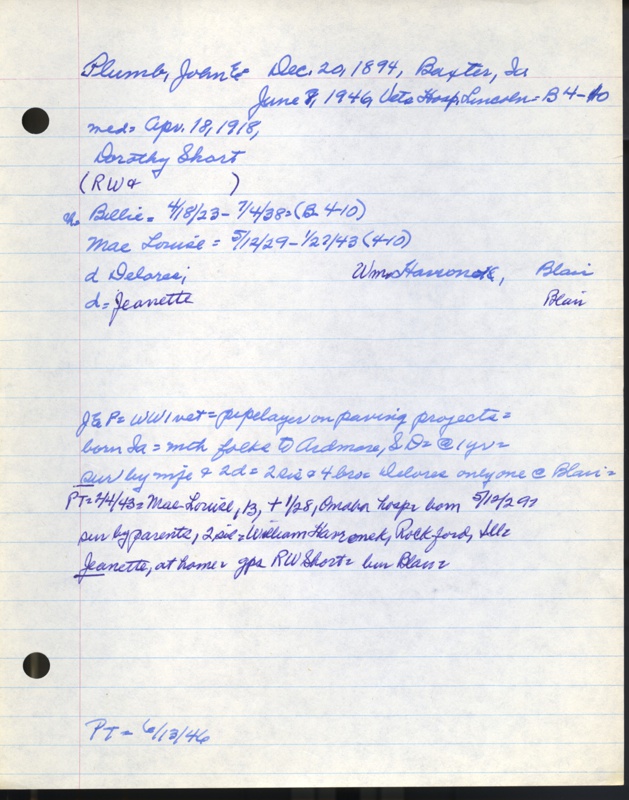 Plumb, John E. Dec. 20, 1894, Baxter, Ia
June 7, 1946, Vets Hosp, Lincoln = B 4-10
med = Apr. 18, 1918,
Dorothy Short
(RW & )
Billie = 4/18/23 - 7/4/38 = (B 4-10)
Mae Louise = 5/12/29 - 1/27/43 (4-10)
d Delores; Wm. Havronek, Blair
d = Jeanette Blair
J E P = WW1 vet = pipelayer on paving projects =
born Ia = mth folks to Ardmore, S.D = @ 1 yr =
sur by wife & 2d = 2 sis & 4 bro = Delores only one @ Blair =
PT = 2/4/43 = Mae Louise, 13, + 1/28, Omaha hosp = born 5/12/29 =
sur by parents, 2 sis = William Havronek, Rockford, Ill =
Jeanette, at home = gps RW Short = bur Blair =
PT = 6/13/46